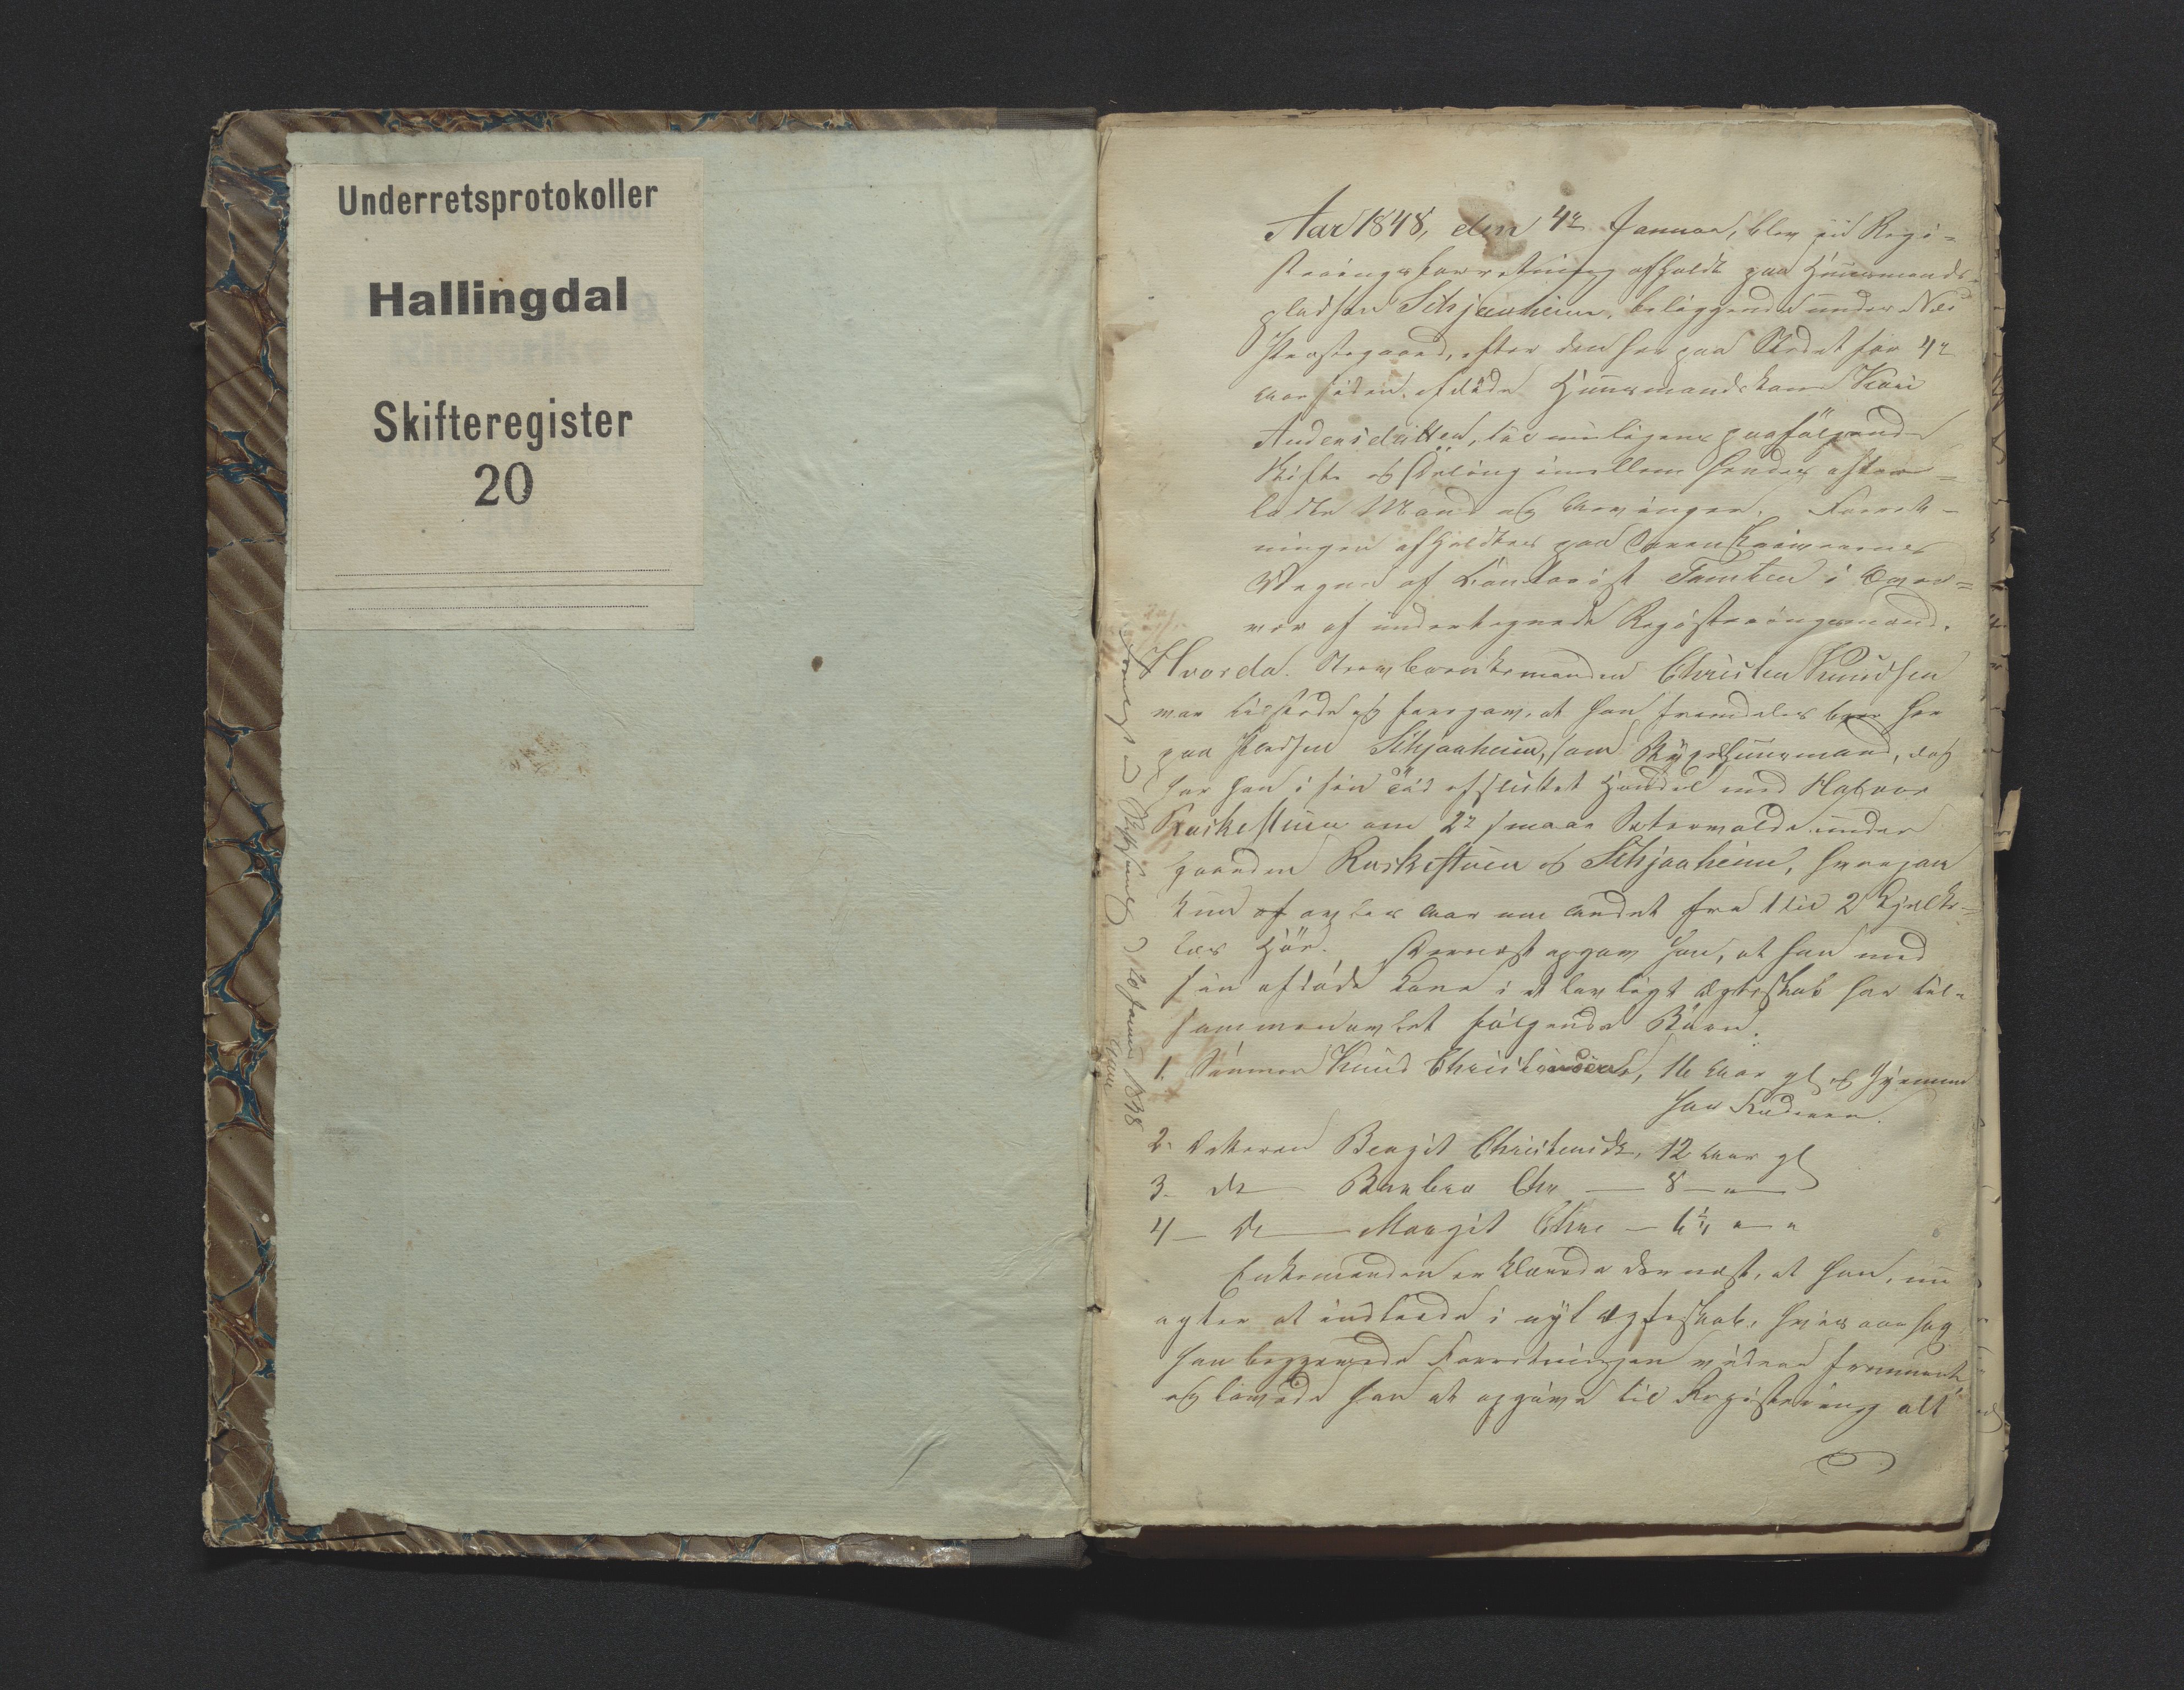 Underretsprotokoller
Hallingdal
Skifteregister
20
Aar 1848, den 4de Januar, blev en Regi=
streringsforretning afholdt paa Huusmands-
pladsen Schjaaheim, beliggende under Næs
Præstegaard, efter den her paa Stedet for 4re
Aar siden afdøde Huusmandskone Kari
Andersdatter, til paafølgende
Skifte og Deling imellem hendes efter=
ladte Mand og Arvinger. Forret-
ningen afholdtes paa Sorenskriverens
Vegne af Contorist i Over=
vær af undertegnede Registreringsmænd.
Hvorda Enkemanden Christen Knudsen
var tilstede og foregav, at han fremdeles boer her
paa Pladsen Schjaaheim, som Huusmand, dog
har han i sin Tid afsluttet Handel med Halvor
Ruskestuen om 2de smaae under
Gaarden Ruskestuen og Schjaaheim, hvorpaa
kun avles Aar om andet fra 1 til 2
læs Høe. Dernæst opgav han, at han med
sin afdøde Kone i et lovligt Ægteskab har til=
sammenavlet følgende Børn.
1. Sønnen Knud Christensen, 16 Aar gl og hjemme
hos Faderen.
2. Datteren Bergit Christensdr, 12 Aar gl
3. Do Barbro Chr — 8 — " —
4 — Do — Margit Chr — 6 " — "
Enkemanden erklærede dernæst, at han, nu
agter at indtræde i nyt Ægteskab, hvis aarsag
han begjærede Forretningen videre fremmet,
og lovede han at opgive til Registrering alt
20 Januar 1848